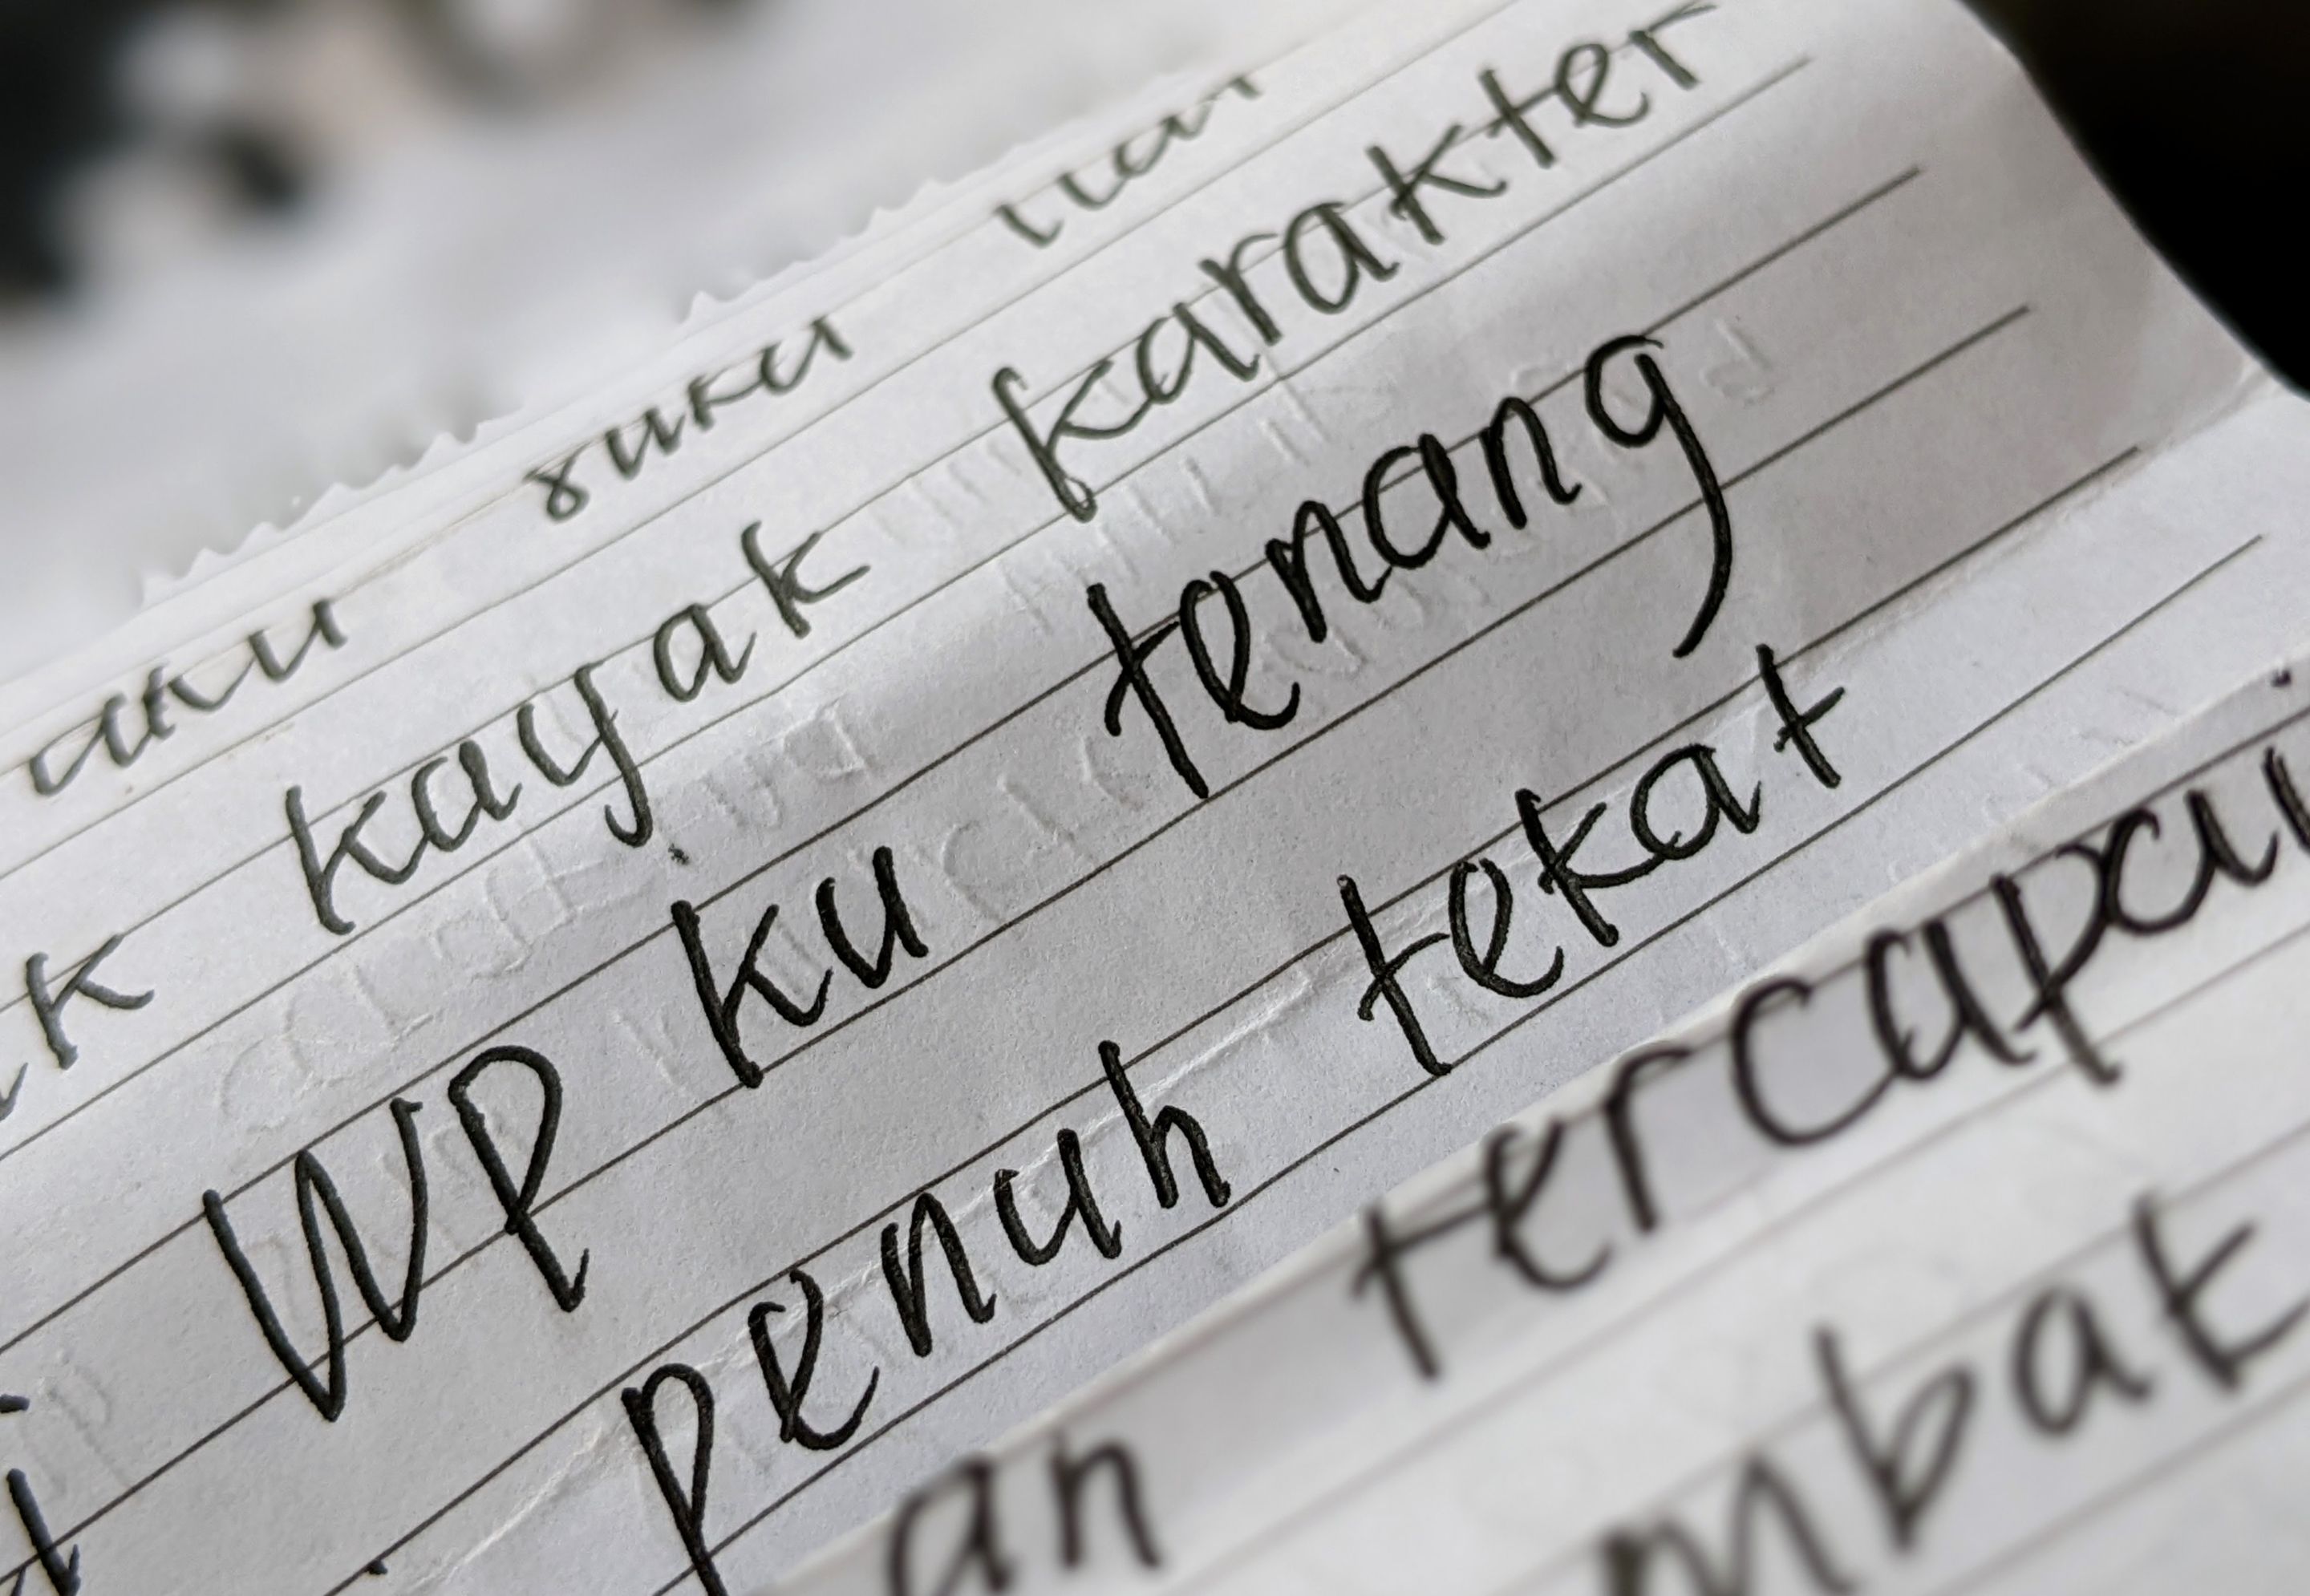 aku suka
kayak karakter
WP ku tenang
penuh tekat
tercapai